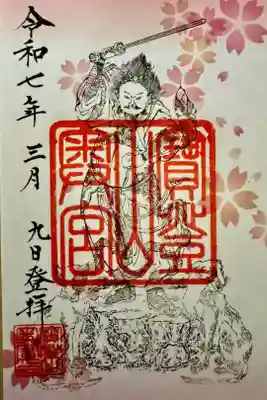 令和七年 三月 九日登拝
寶登
山
奥宮